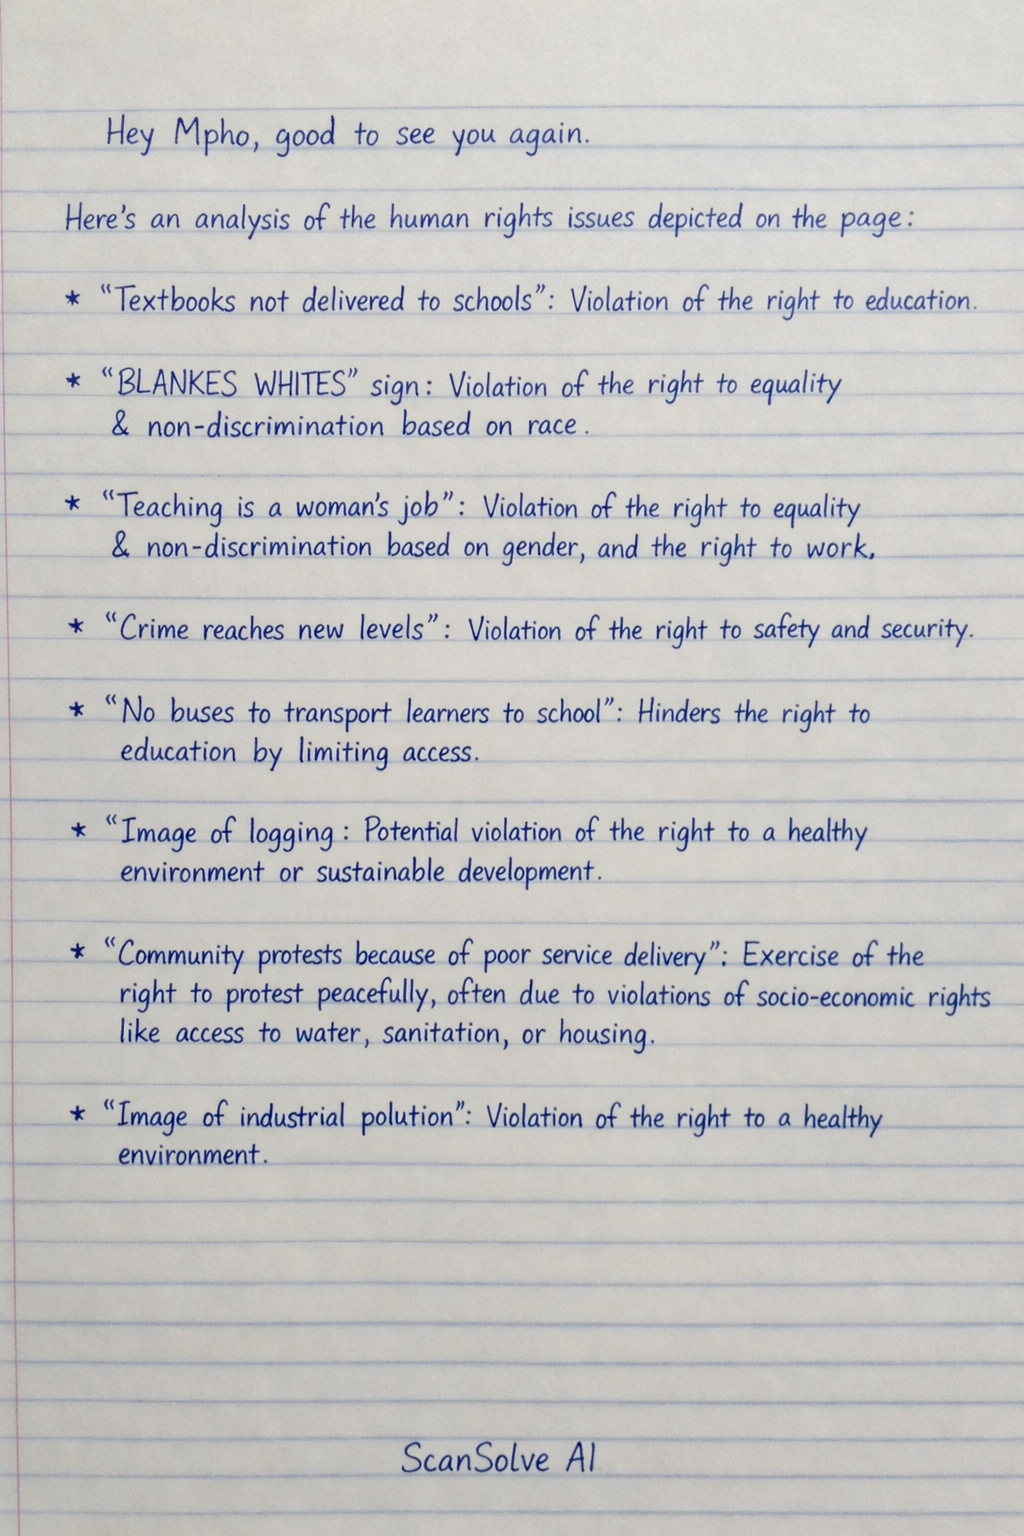 Hey Mpho, good to see you again.
Here's an analysis of the human rights issues depicted on the page:
* "Textbooks not delivered to schools": Violation of the right to education.
* "BLANKES WHITES" sign: Violation of the right to equality
& non-discrimination based on race.
* "Teaching is a woman's job": Violation of the right to equality
& non-discrimination based on gender, and the right to work.
* "Crime reaches new levels": Violation of the right to safety and security.
* "No buses to transport learners to school": Hinders the right to
education by limiting access.
* "Image of logging: Potential violation of the right to a healthy
environment or sustainable development.
* "Community protests because of poor service delivery": Exercise of the
right to protest peacefully, often due to violations of socio-economic rights
like access to water, sanitation, or housing.
* "Image of industrial polution": Violation of the right to a healthy
environment.
ScanSolve AI